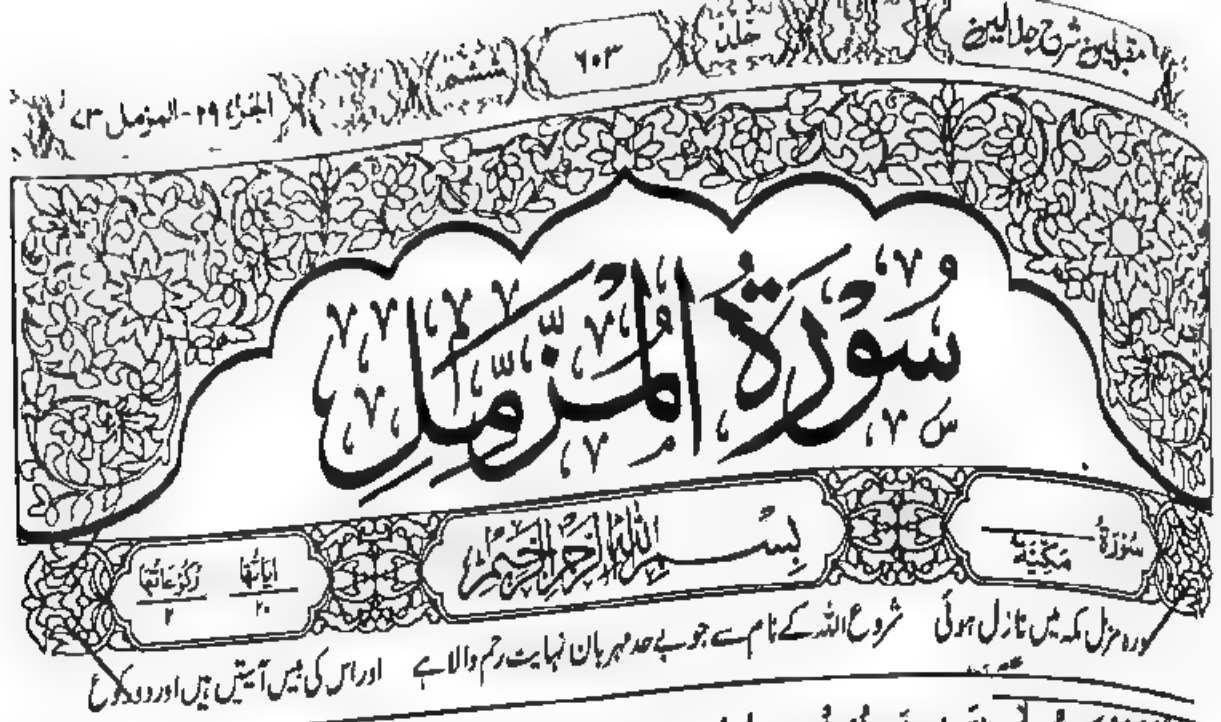 مقبلین شرح جلالین جلد ۶۰۳ ششم الجزء ۲۹ - المزمل ۷۳
سُوْرَةُ الْمُزَّمِّلِ
سُوْرَةُ مَكِّيَّةٌ
بِسْمِ اللهِ الرَّحْمٰنِ الرَّحِيْمِ
اٰيَاتُهَا ۲۰ رُكُوْعَاتُهَا ۲
سورہ مزمل مکہ میں نازل ہوئی شروع اللہ کے نام سے جو بے حد مہربان نہایت رحم والا ہے اور اس کی بیس آیتیں ہیں اور دو رکوع